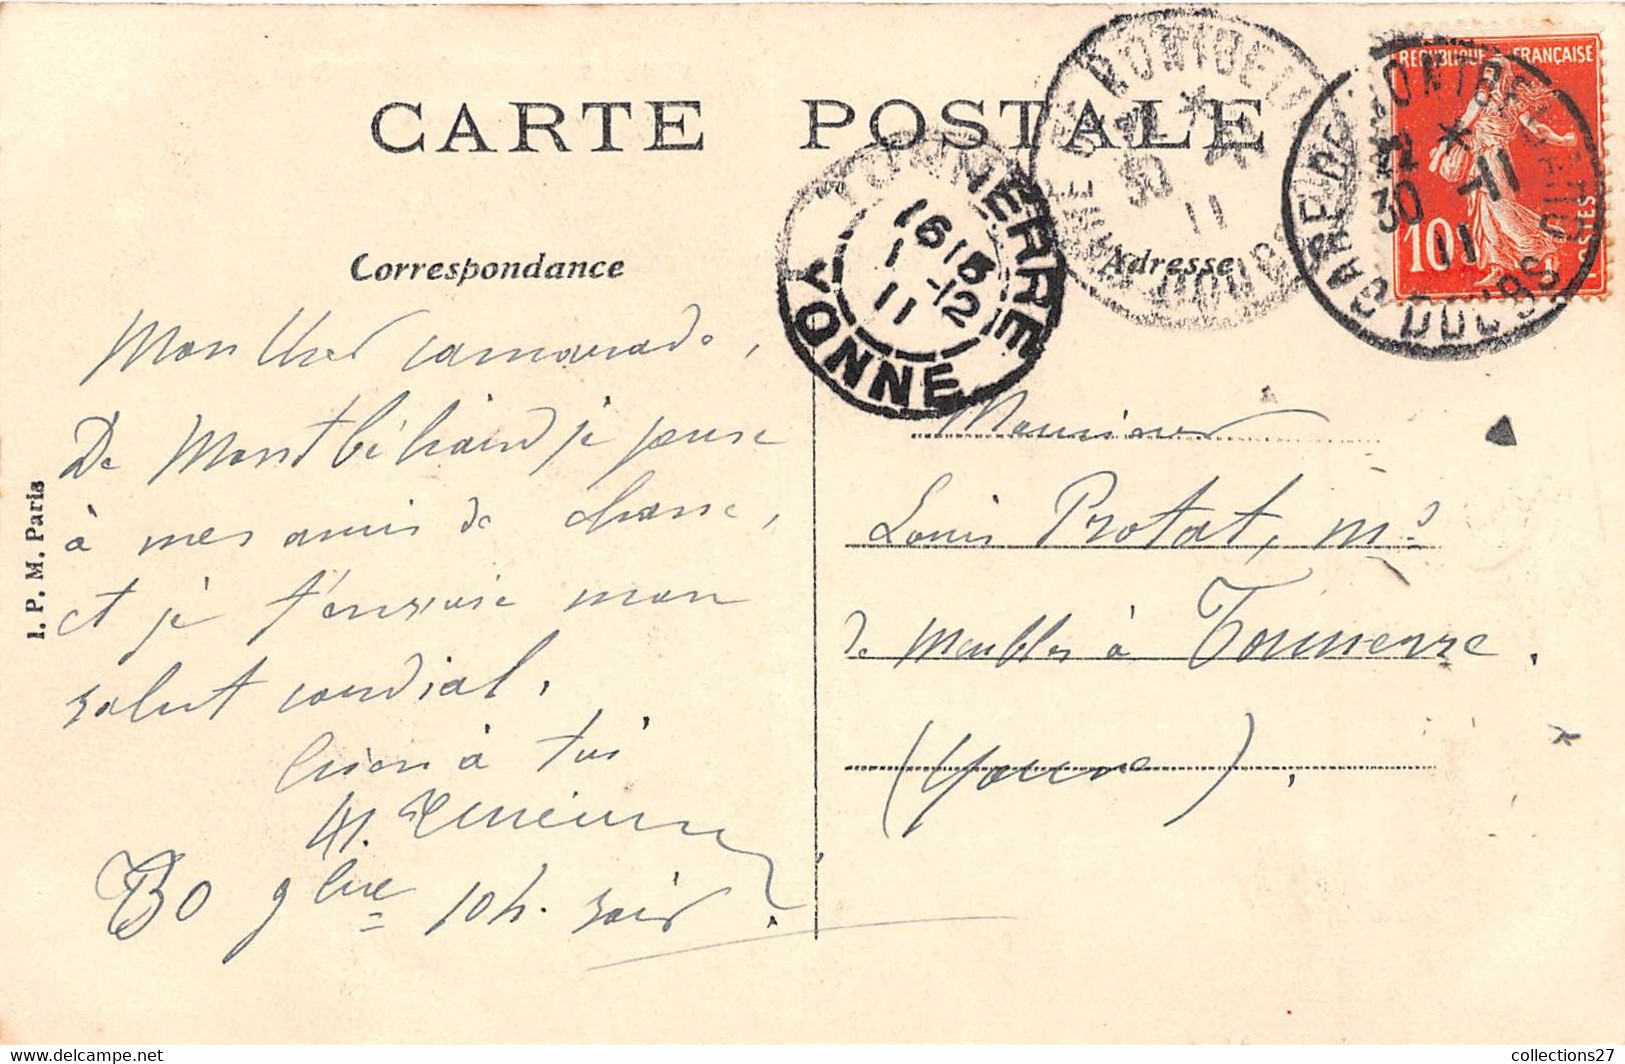 CARTE POSTALE
Correspondance
Adresse
RÉPUBLIQUE FRANÇAISE
10c
POSTES
GARE DE MONTBELIARD
* 
30 -11
11
DOUBS
GARE DE MONTBELIARD
*
30 -11
11
DOUBS
TONNERRE
16 15
1 -12
11
YONNE
Mon cher camarade,
De Montbéliard je pense
à mes amis de chasse,
et je t'envoie mon
salut cordial.
bien à toi
30 9bre 10h. soir
Monsieur
Louis Protat, md
de Meubles à Tonnerre.
(Yonne).
I. P. M. Paris
collections27